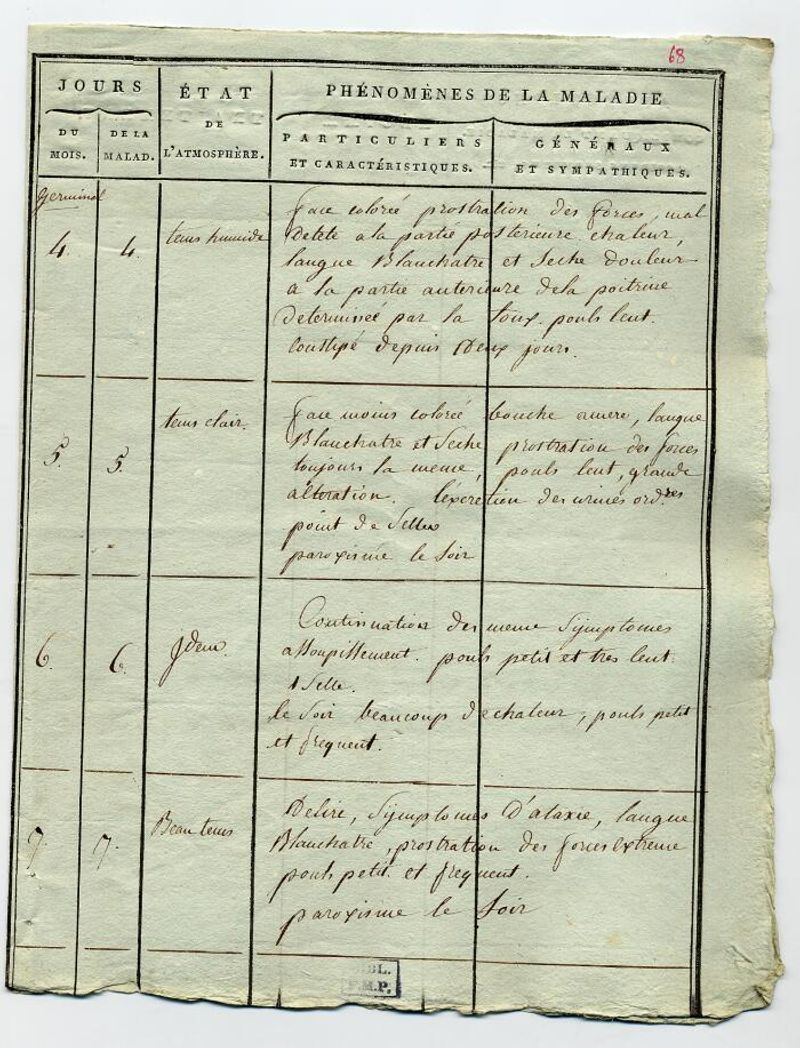 68
JOURS
DU MOIS.
DE LA MALAD.
ÉTAT
DE
L'ATMOSPHÈRE.
PHÉNOMÈNES DE LA MALADIE
PARTICULIERS
ET CARACTÉRISTIQUES.
GÉNÉRAUX
ET SYMPATHIQUES.
Germinal
4. 4. tems humide
face colorée prostration des forces, mal
Detete a la partie posterieure chaleur,
langue Blanchatre et Seche douleur
a la partie anterieure dela poitrine
Determinée par la toux. pouls lent.
Constipé depuis Deux jours.
5. 5. tems clair.
face moins colorée bouche amere, langue
Blanchatre et Seche prostration des forces
toujours la meme, pouls lent, grande
alteration. l'éxcretion des urines ord.res
point de Selles
paroxisme le Soir
6. 6. Jdem.
Continuation des meme Symptomes
assoupissement. pouls petit et tres lent.
1 Selle.
le Soir beaucoup de chaleur, pouls petit
et frequent.
7. 7. Beau tems
Delire, Symptomes D'ataxie, langue
Blanchatre, prostration des forces extreme
pouls petit et frequent.
paroxisme le Soir
BIBL.
F.M.P.